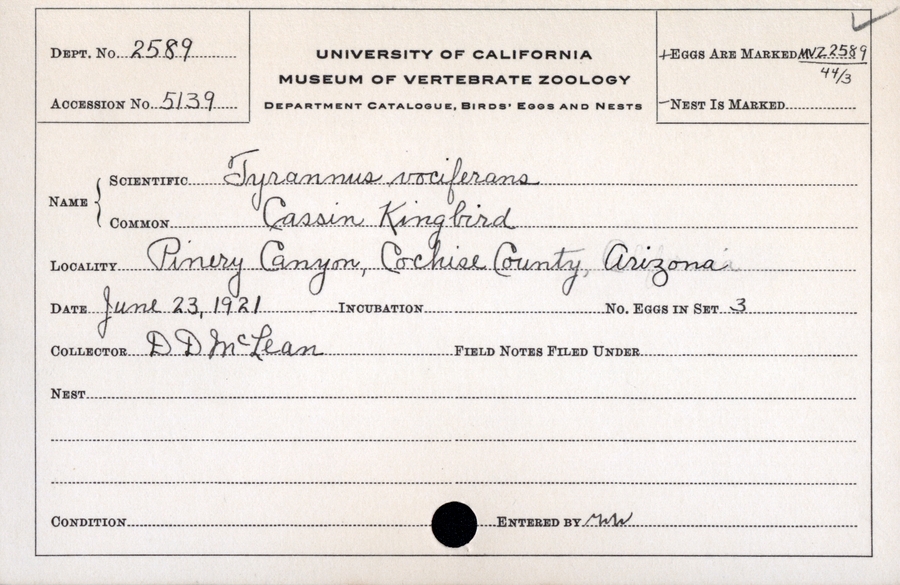 DEPT. No. 2589
ACCESSION No. 5139
UNIVERSITY OF CALIFORNIA
MUSEUM OF VERTEBRATE ZOOLOGY
DEPARTMENT CATALOGUE, BIRDS' EGGS AND NESTS
+EGGS ARE MARKED MVZ 2589
44/3
–NEST IS MARKED
NAME
SCIENTIFIC Tyrannus vociferans
COMMON Cassin Kingbird
LOCALITY Pinery Canyon, Cochise County, Arizona
DATE June 23, 1921 INCURATION No. EGGS IN SET 3
COLLECTOR D D McLean FIELD NOTES FILED UNDER
NEST
CONDITION ENTERED BY